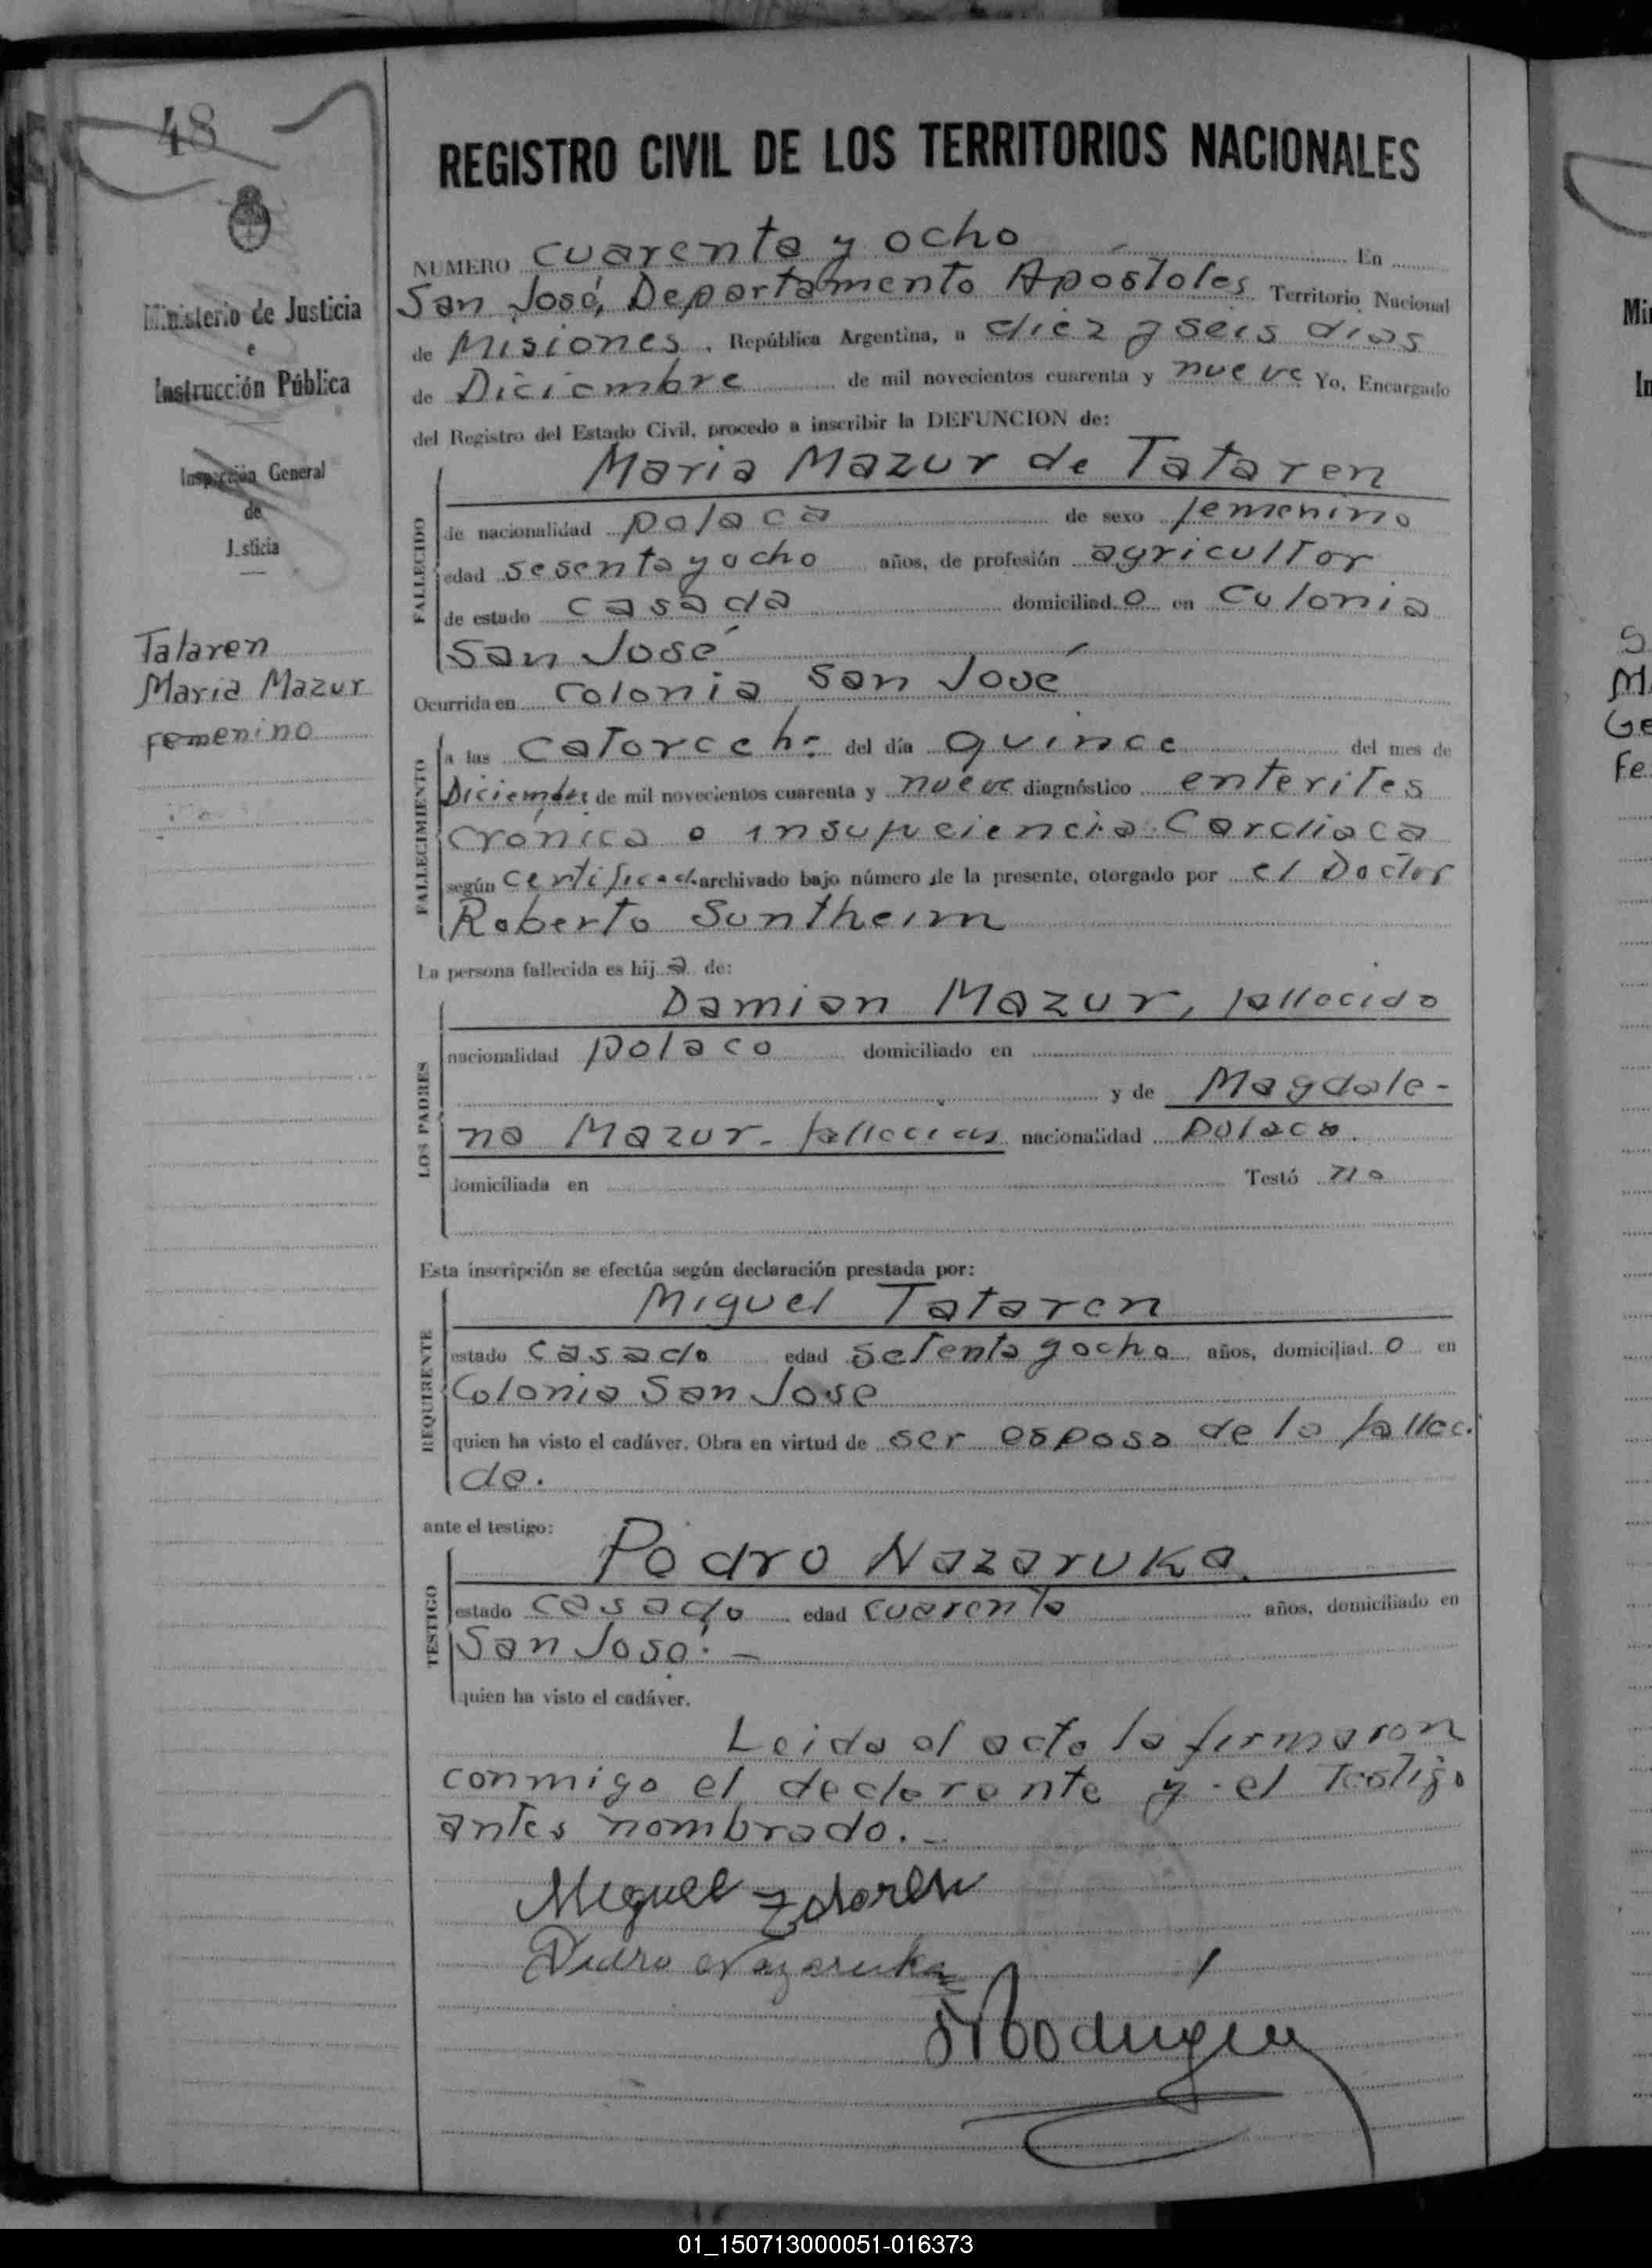 48
Ministerio de Justicia
e
Instrucción Pública
Inspección General
de
Justicia
Tataren
Maria Mazur
femenino
REGISTRO CIVIL DE LOS TERRITORIOS NACIONALES
NUMERO cuarenta y ocho En
San José, Departamento Apostoles Territorio Nacional
de Misiones, República Argentina, a diez y seis dias
de Diciembre de mil novecientos cuarenta y nueve Yo, Encargado
del Registro del Estado Civil, procedo a inscribir la DEFUNCION de:
Maria Mazur de Tataren
FALLECIDO
de nacionalidad polaca de sexo femenino
edad sesenta y ocho años, de profesión agricultor
de estado casada domiciliad o en Colonia
San José
Ocurrida en colonia San José
FALLECIMIENTO
a las catorce h: del día quince del mes de
Diciembre de mil novecientos cuarenta y nueve diagnóstico enterites
crónica o insuficiencia Cardiaca
según certificado archivado bajo número de la presente, otorgado por el Doctor
Roberto Sontheim
La persona fallecida es hij a de:
LOS PADRES
Damian Mazur, fallecido
nacionalidad polaco domiciliado en
y de Magdale-
na Mazur- fallecida nacionalidad polaca.
domiciliada en Testó no
Esta inscripción se efectúa según declaración prestada por:
REQUIRENTE
Miguel Tataren
estado casado edad setenta y ocho años, domiciliad o en
Colonia San Jose
quien ha visto el cadáver. Obra en virtud de ser esposo de la falleci
da.
ante el testigo:
TESTIGO
Pedro Nazaruka
estado casado edad cuarenta años, domiciliado en
San José.-
quien ha visto el cadáver.
Leida el acta la firmaron
conmigo el declarante y el testigo
antes nombrado.-
Miguel Tataren
Pedro Nazaruka
01_150713000051-016373